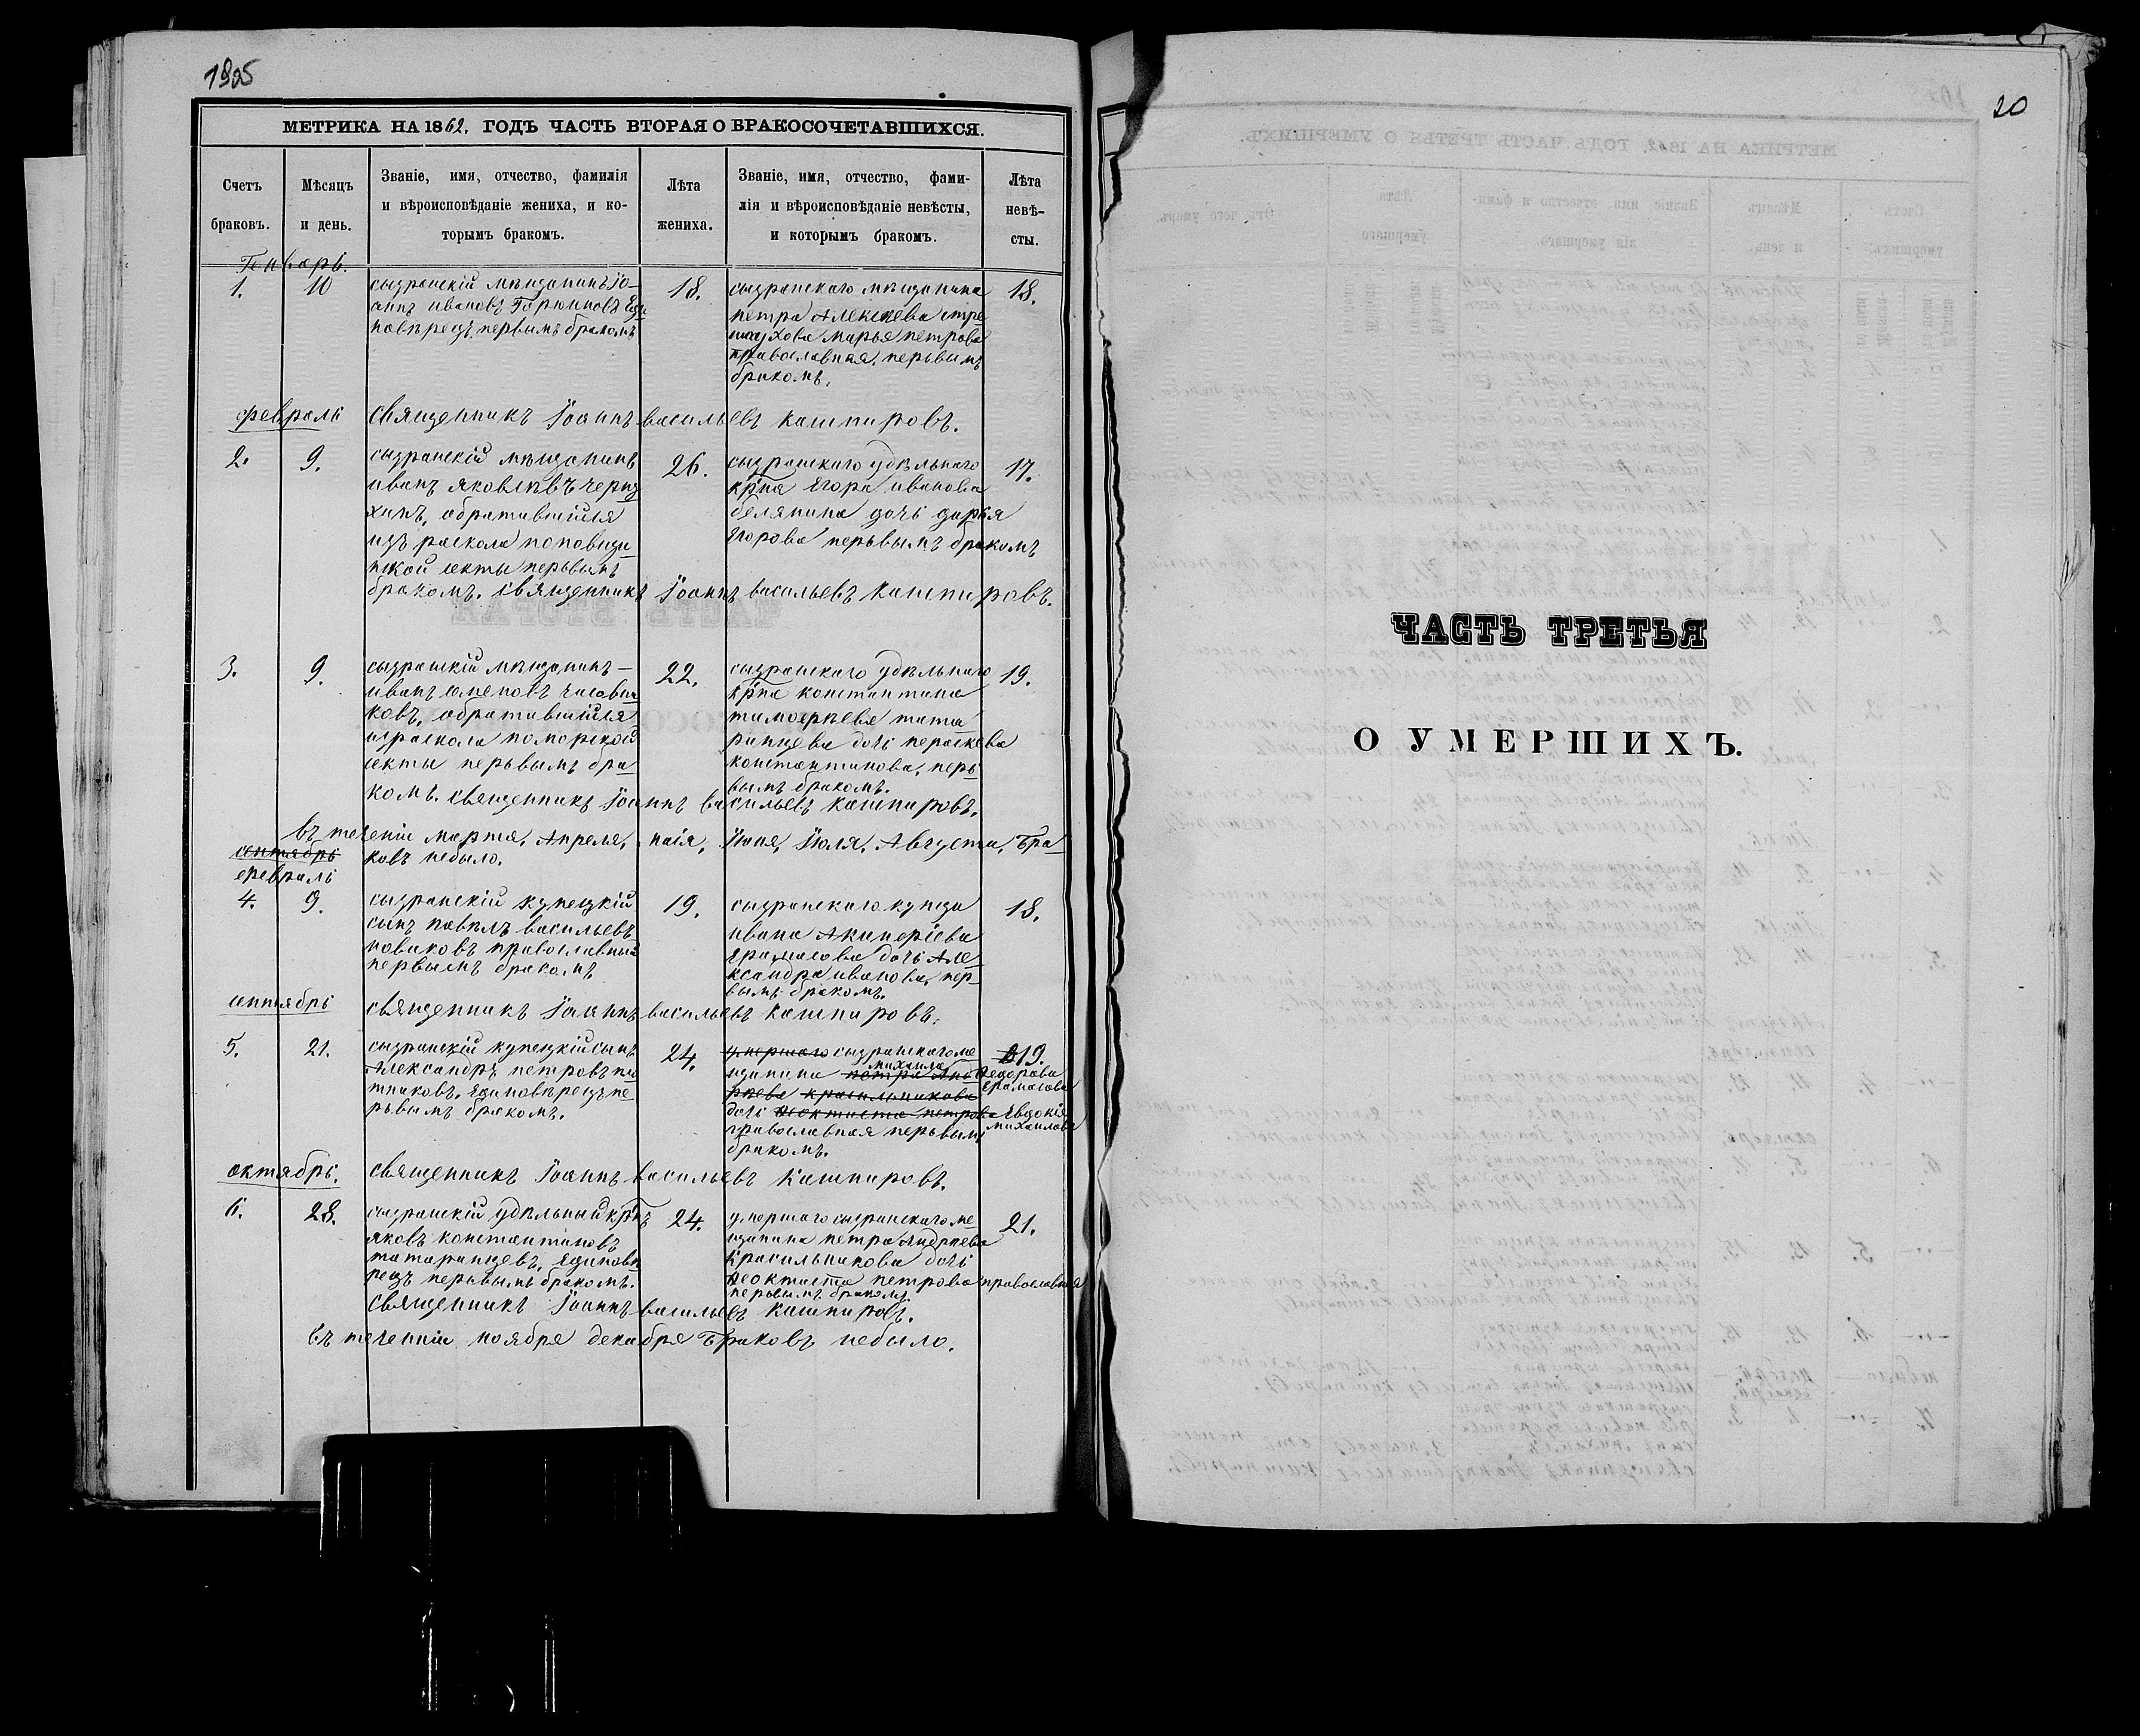 1925
МЕТРИКА НА 1862. ГОДЪ ЧАСТЬ ВТОРАЯ О БРАКОСОЧЕТАВШИХСЯ.
Счетъ браковъ.
Мѣсяцъ и день.
Званіе, имя, отчество, фамилія
и вѣроисповѣданіе жениха, и ко-
торымъ бракомъ.
Лѣта жениха.
Званіе, имя, отчество, фами-
лія и вѣроисповѣданіе невѣсты,
и которымъ бракомъ.
Лѣта невѣ-
сты.
Генварь.
1. 10
сызранскій мѣщанинъ Іо-
аннъ ивановъ Горюновъ Еди
новѣрецъ, первымъ бракомъ
18.
сызранскаго мѣщанина
петра Алексѣева стре
духова марья петрова
православная, первымъ
бракомъ.
18.
февраль
священникъ Іоаннъ васильевъ кашпировъ.
2. 9.
сызранскій мѣщанинъ
иванъ яковлевъ
хинъ, обратившійся
изъ раскола поповщи
нской секты первымъ
бракомъ. священникъ Іоаннъ васильевъ кашпировъ.
26.
сызранскаго удѣльнаго
крна Егора иванова
белянина дочь дарья
Егорова первымъ бракомъ
17.
3. 9.
сызранскій мѣщанинъ —
иванъ семеновъ часовни
ковъ, обратившійся
израскола поморской
секты первымъ бра
комъ. священникъ Іоаннъ васильевъ кашпировъ.
22.
сызранскаго удѣльнаго
крна константина
тимофѣева тата
ринцева дочь параскева
константинова, перь
вымъ бракомъ.
19.
въ теченіи марта, Апреля, маія, Іюня, Іюля, Августа, Бра
ковъ небыло.
сентябрь
февраль
4. 9.
сызранскій купецкій
сынъ павелъ васильевъ
новиковъ православный
первымъ бракомъ
19.
сызранскаго купца
ивана Акинфіева
Ерамасова дочь Але
ксандра иванова, пер
вымъ бракомъ.
18.
сентябрь
священникъ Іоаннъ васильевъ кашпировъ.
5. 21.
сызранскій купецкій сынъ
Александръ петровъ
тниковъ. Единовѣрецъ пе
рвымъ бракомъ.
24.
умершаго сызранскаго ме
щанина петра михаила Федорова
красильникова Ерамасова
дочь феоктиста петрова Евдокія
михаилова
православная первымъ
бракомъ.
19.
октябрь.
священникъ Іоаннъ васильевъ кашпировъ.
6. 28.
сызранскій удѣльный крнъ
яковъ константиновъ
татаринцевъ, Единовѣ
рецъ первымъ бракомъ.
24.
умершаго сызранскаго ме
щанина петра Андреева
красильникова дочь
феоктиста петрова православная
первымъ бракомъ.
21.
священникъ Іоаннъ васильевъ кашпировъ.
въ теченіи ноября декабря Браковъ небыло.
20
ЧАСТЬ ТРЕТЬЯ
О УМЕРШИХЪ.